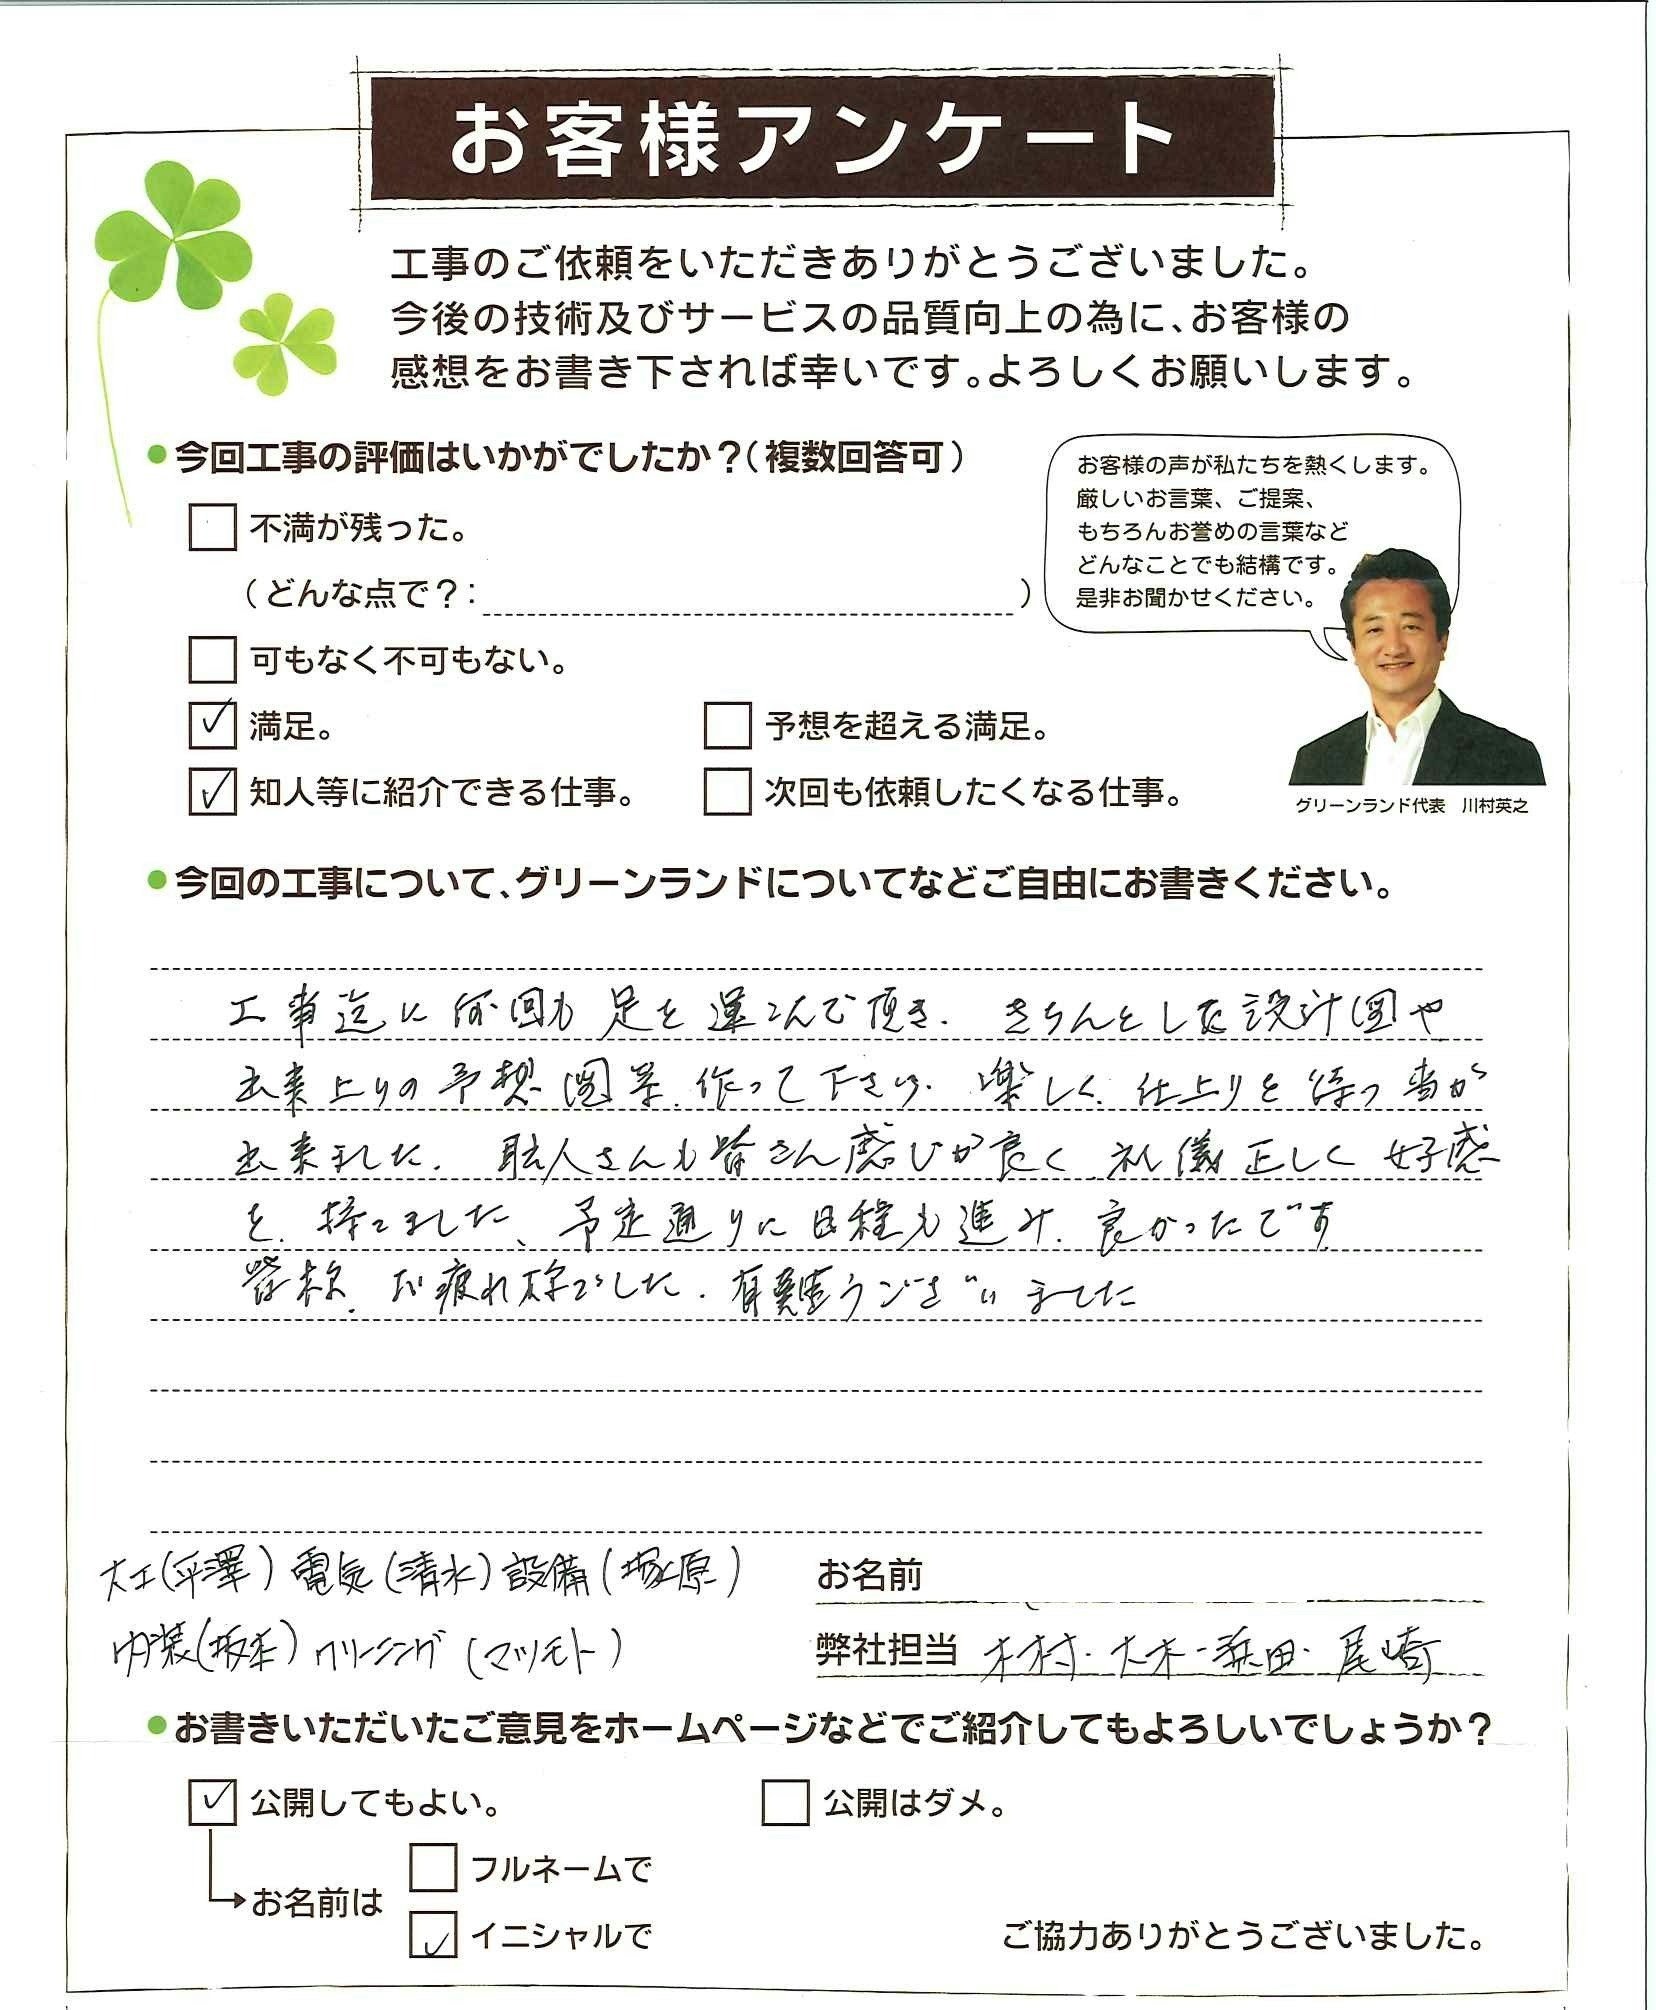 お客様アンケート
工事のご依頼をいただきありがとうございました。
今後の技術及びサービスの品質向上の為に、お客様の
感想をお書き下されば幸いです。よろしくお願いします。
●今回工事の評価はいかがでしたか？(複数回答可)
不満が残った。
(どんな点で？: )
可もなく不可もない。
✓ 満足。
予想を超える満足。
✓ 知人等に紹介できる仕事。
次回も依頼したくなる仕事。
お客様の声が私たちを熱くします。
厳しいお言葉、ご提案、
もちろんお誉めの言葉など
どんなことでも結構です。
是非お聞かせください。
グリーンランド代表 川村英之
●今回の工事について、グリーンランドについてなどご自由にお書きください。
工事迄に何回も足を運こんで頂き、きちんとした設計図や
出来上りの予想図等、作って下さり、楽しく、仕上りを待つ事が
出来ました。職人さんも皆さん感じが良く、礼儀正しく好感
を、持てました、予定通りに日程も進み、良かったです
皆様、お疲れ様でした。有難うございました
大工(平澤) 電気(清水) 設備(塚原)
内装(坂本) クリーニング(マツモト)
お名前
弊社担当 木村・大木・浜田・尾崎
●お書きいただいたご意見をホームページなどでご紹介してもよろしいでしょうか？
✓ 公開してもよい。
公開はダメ。
お名前は
フルネームで
✓ イニシャルで
ご協力ありがとうございました。